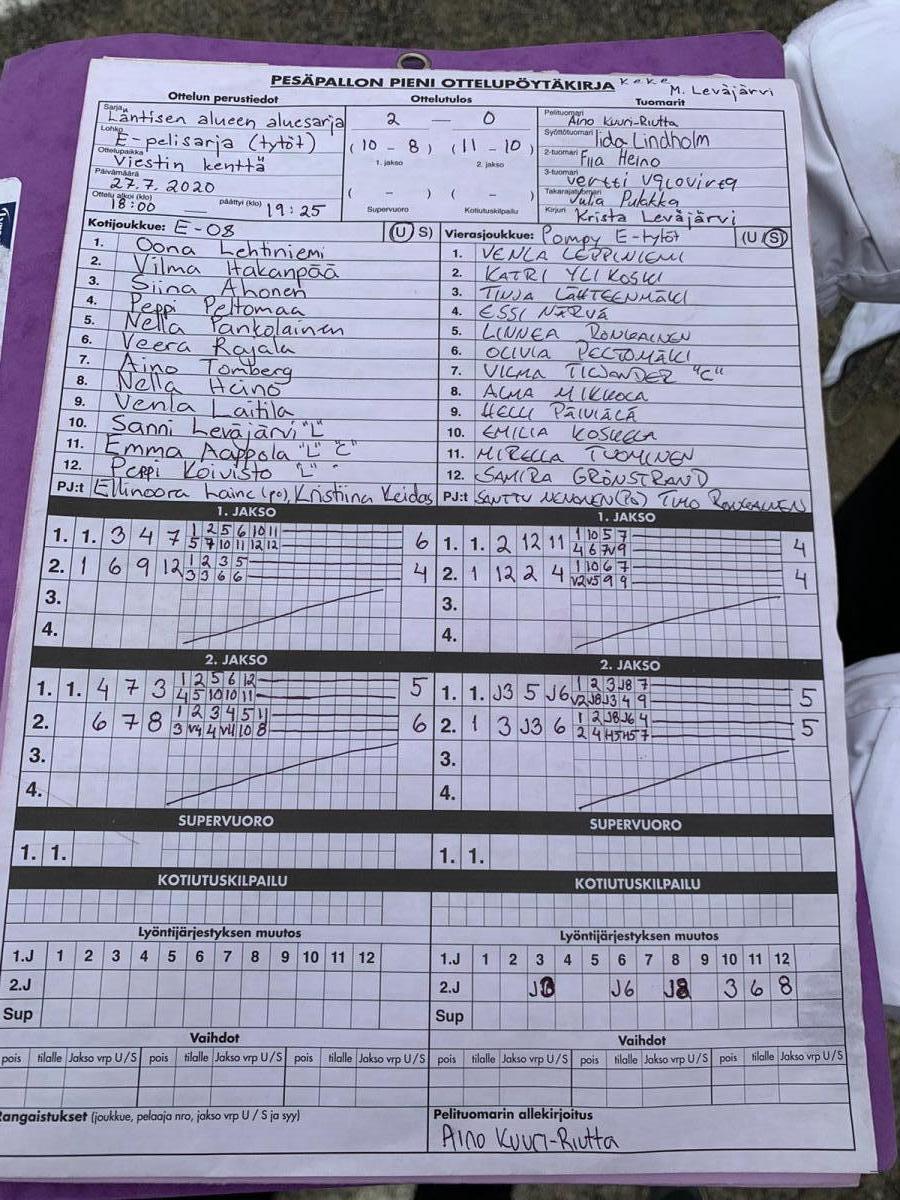 PESÄPALLON PIENI OTTELUPÖYTÄKIRJA KeKe M. Leväjärvi
Ottelun perustiedot Ottelutulos Tuomarit
Sarja Läntisen alueen aluesarja
Lohko E-pelisarja (tytöt)
Ottelupaikka Viestin kenttä
Päivämäärä 27.7. 2020
Ottelu alkoi (klo) 18:00 — päättyi (klo) 19:25
2 — 0
(10 - 8) (11 - 10)
1. jakso 2. jakso
( - ) ( - )
Supervuoro Kotiutuskilpailu
Pelituomari Aino Kuuri-Riutta
Syöttötuomari Iida Lindholm
2-tuomari Fiia Heino
3-tuomari Vertti Valovirta
Takarajatuomari Julia Pulakka
Kirjuri Krista Leväjärvi
Kotijoukkue: E-08 (U S)
1. Oona Lehtiniemi
2. Vilma Hakanpää
3. Siina Ahonen
4. Peppi Peltomaa
5. Nella Pankolainen
6. Veera Rajala
7. Aino Tomberg
8. Nella Heino
9. Venla Laitila
10. Sanni Leväjärvi "L"
11. Emma Aappola "L" "C"
12. Peppi Koivisto "L"
PJ:t Ellinoora Laine (po), Kristiina Keidas
Vierasjoukkue: Pompy E-tytöt (U S)
1. VENLA LEPPINIEMI
2. KATRI YLIKOSKI
3. TINJA LÄHTEENMÄKI
4. ESSI NÄRVÄ
5. LINNEA RONGAINEN
6. OLIVIA PELTOMÄKI
7. VILMA TIWONDER "C"
8. ALMA MIKKOLA
9. HELLI PÄIVIÄLÄ
10. EMILIA KOSKELA
11. MIRELLA TUOMINEN
12. SAMIRA GRÖNSTRAND
PJ:t SANTTU NENONEN (PO) TIMO RONGAINEN
1. JAKSO
1. 1. 3 4 7 1 2 5 6 10 11 6
5 7 10 11 12 12
2. 1 6 9 12 1 2 3 5 4
3 3 6 6
3.
4.
1. JAKSO
1. 1. 2 12 11 1 10 5 7 4
4 6 7V9
2. 1 12 2 4 1 10 6 7 4
V2 V5 9 9
3.
4.
2. JAKSO
1. 1. 4 7 3 1 2 5 6 12 5
4 5 10 10 11
2. 6 7 8 1 2 3 4 5 11 6
3 V4 4 V11 10 8
3.
4.
2. JAKSO
1. 1. J3 5 J6 1 2 3 J8 7 5
V2 J8 J3 4 9
2. 1 3 J3 6 1 2 J8 J6 4 5
2 4 H5 H5 7
3.
4.
SUPERVUORO SUPERVUORO
1. 1. 1. 1.
KOTIUTUSKILPAILU KOTIUTUSKILPAILU
Lyöntijärjestyksen muutos
1.J 1 2 3 4 5 6 7 8 9 10 11 12
2.J
Sup
Lyöntijärjestyksen muutos
1.J 1 2 3 4 5 6 7 8 9 10 11 12
2.J J6 J8 3 6 8
Sup
Vaihdot Vaihdot
pois tilalle Jakso vrp U / S pois tilalle Jakso vrp U / S pois tilalle Jakso vrp U / S
pois tilalle Jakso vrp U / S pois tilalle Jakso vrp U / S pois tilalle Jakso vrp U / S
Rangaistukset (joukkue, pelaaja nro, jakso vrp U / S ja syy)
Pelituomarin allekirjoitus
Aino Kuuri-Riutta